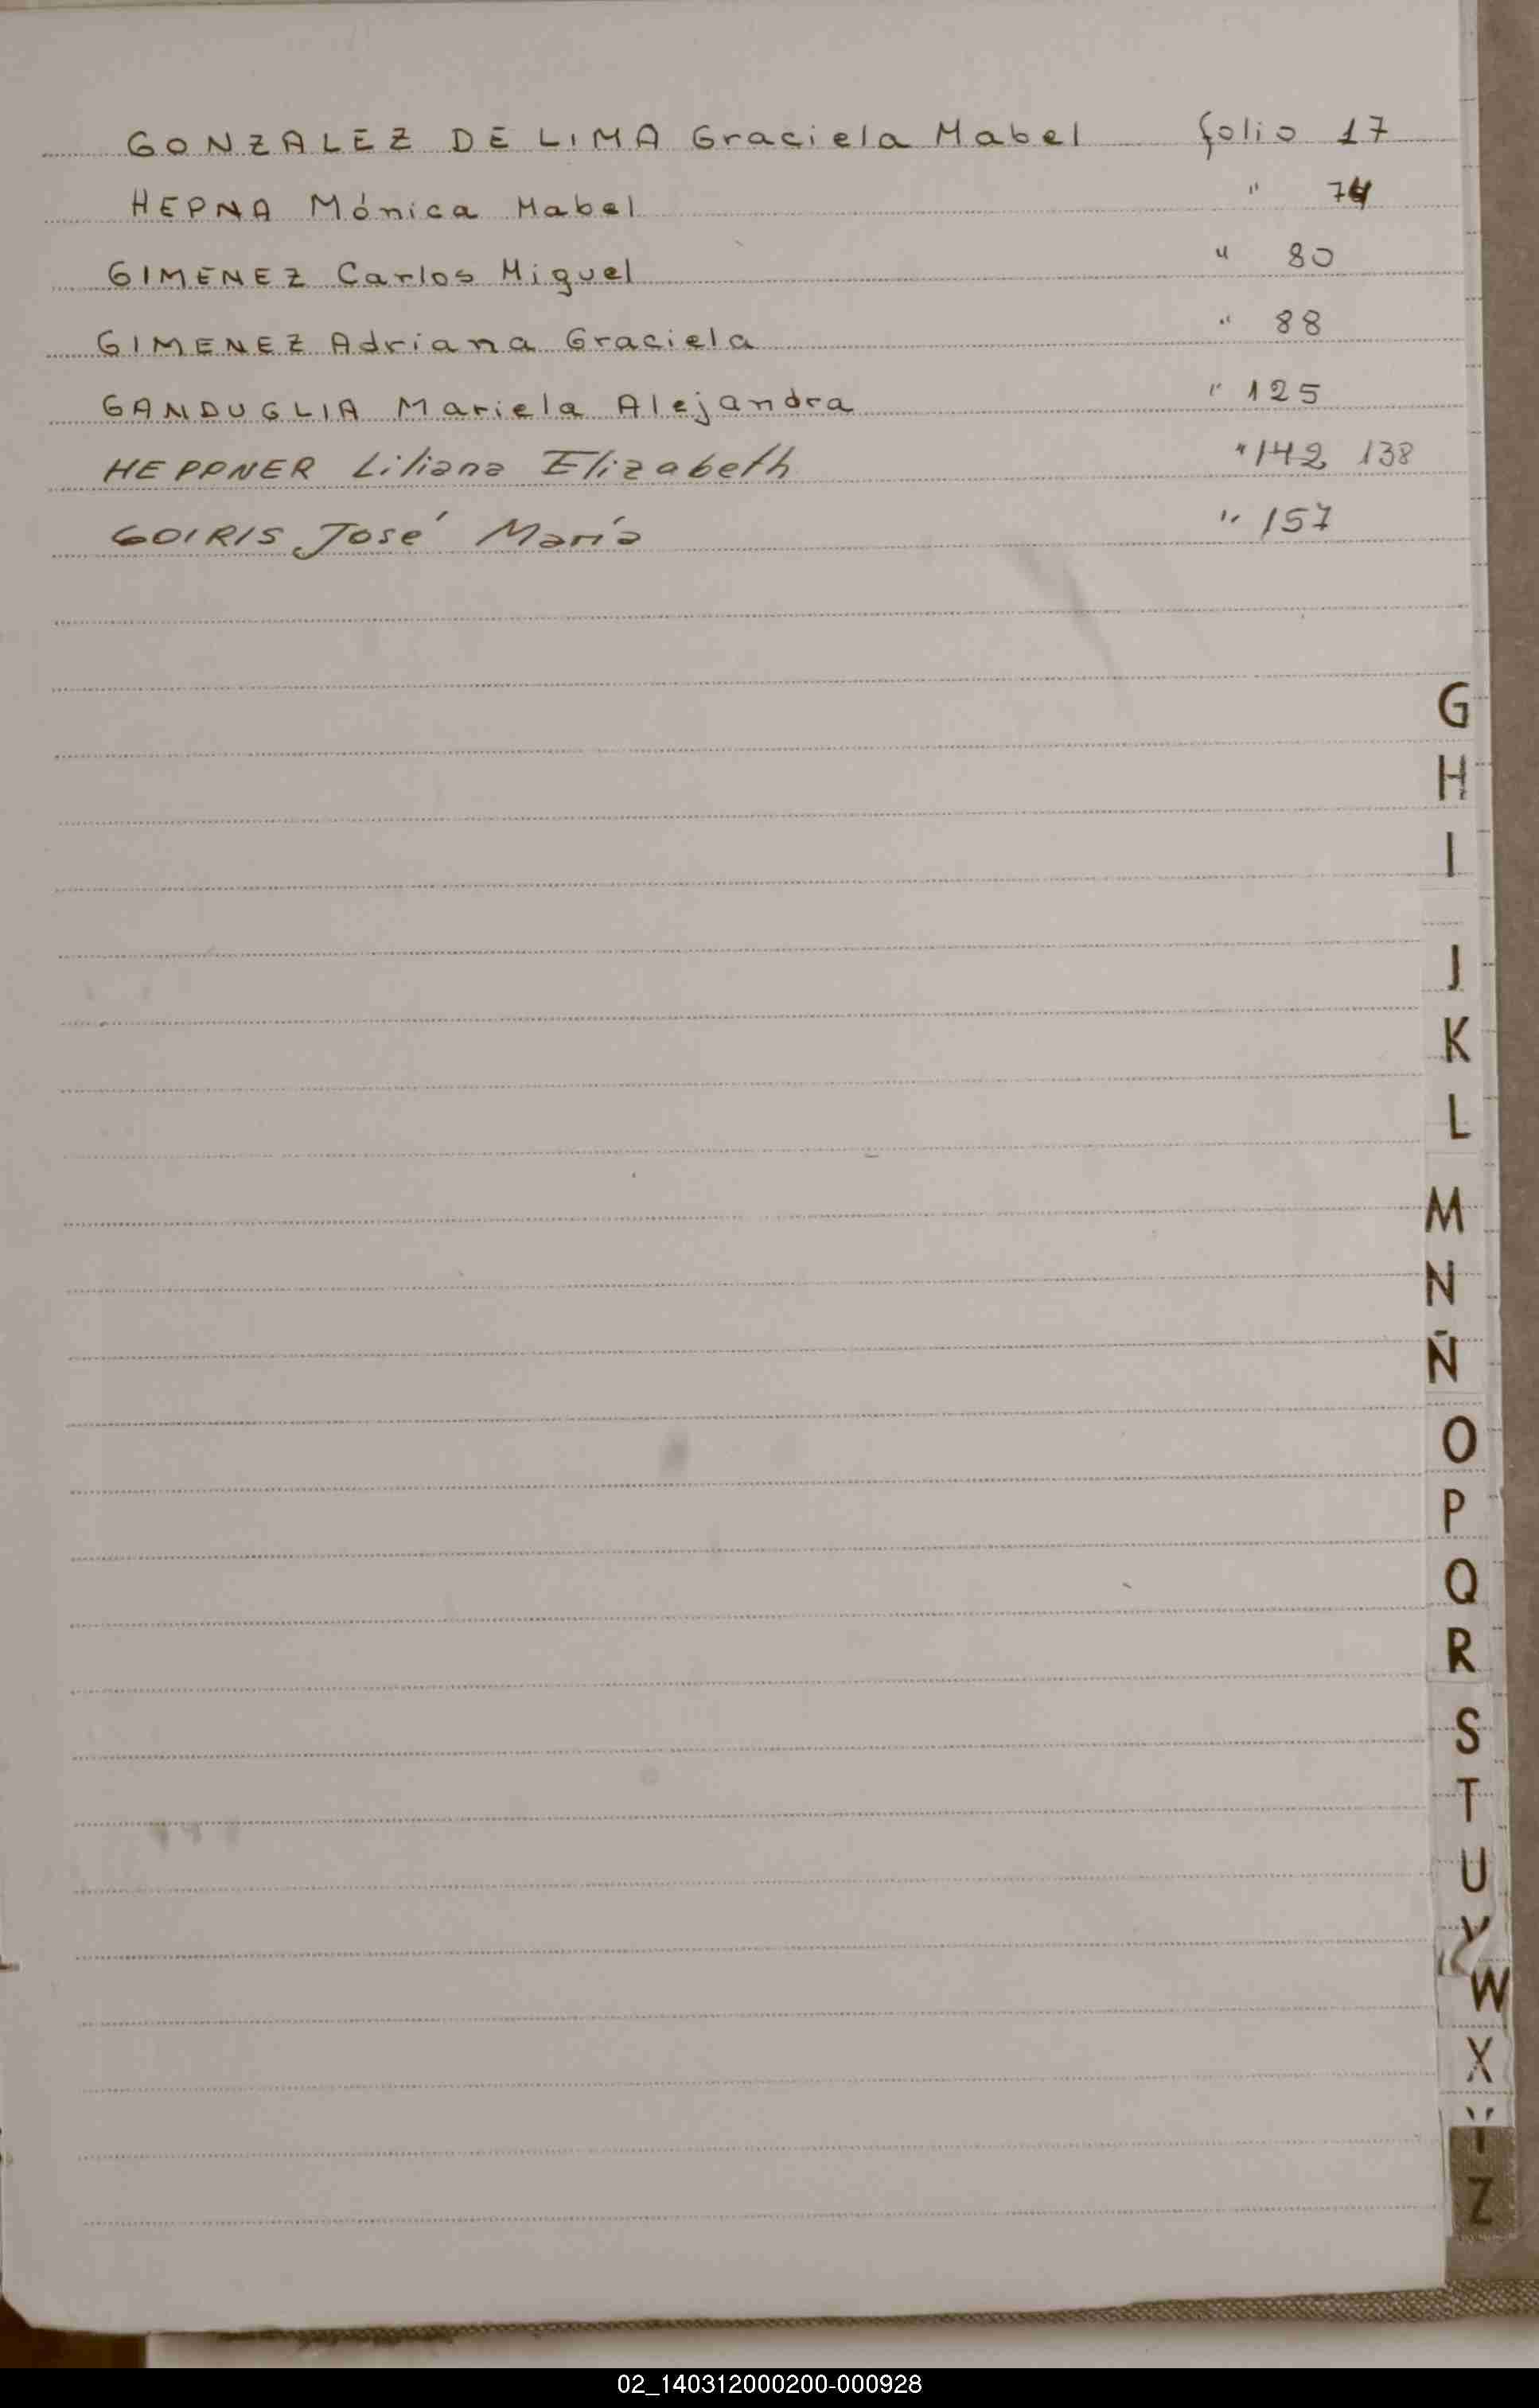 GONZALEZ DE LIMA Graciela Mabel folio 17
HEPNA Mónica Mabel " 74
GIMENEZ Carlos Miguel " 80
GIMENEZ Adriana Graciela " 88
GANDUGLIA Mariela Alejandra " 125
HEPPNER Liliana Elizabeth " 142 138
GOIRIS José María " 157
G
H
I
J
K
L
M
N
Ñ
O
P
Q
R
S
T
U
V
W
X
Y
Z
02_140312000200-000928